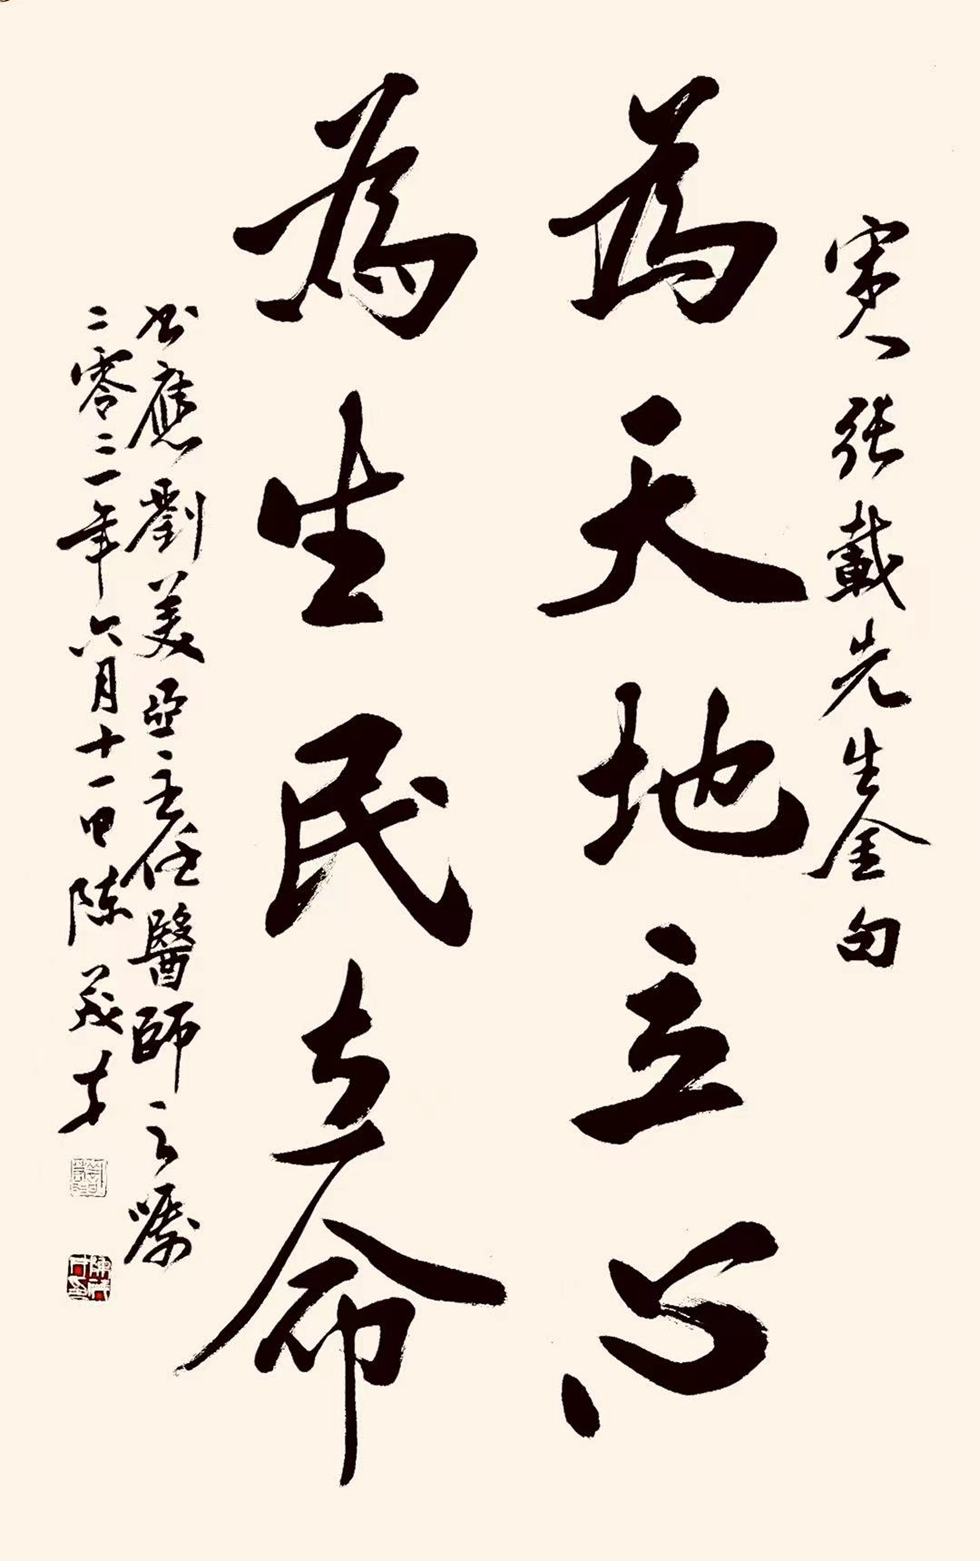 宋人張載先生金句
為天地立心
為生民立命
书應劉美亞主任醫師之嘱
二零二一年六月十一日陳茂才